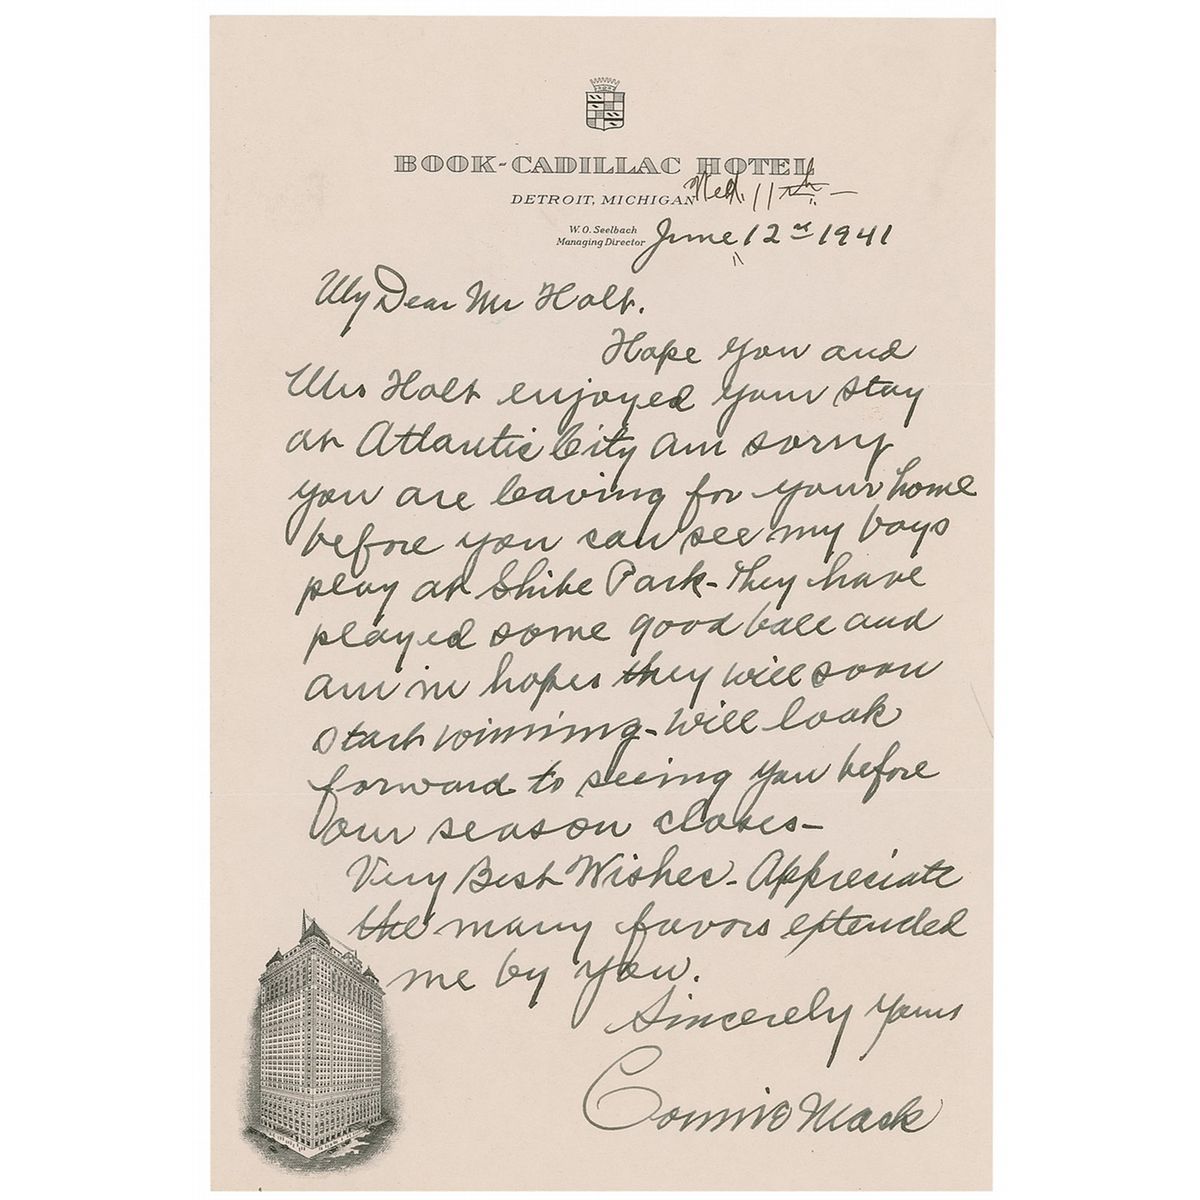 BOOK-CADILLAC HOTEL
DETROIT, MICHIGAN
Wed. 11th.
W. O. Seelbach
Managing Director
June 12nd 1941
My Dear Mr Holt.
Hope you and
Mrs Holt enjoyed your stay
at Atlantic City am sorry
you are leaving for your home
before you can see my boys
play at Shibe Park - they have
played some good ball and
am in hopes they will soon
start winning - Will look
forward to seeing you before
our season closes -
Very Best Wishes - Appreciate
the many favors extended
me by you.
Sincerely Yours
Connie Mack